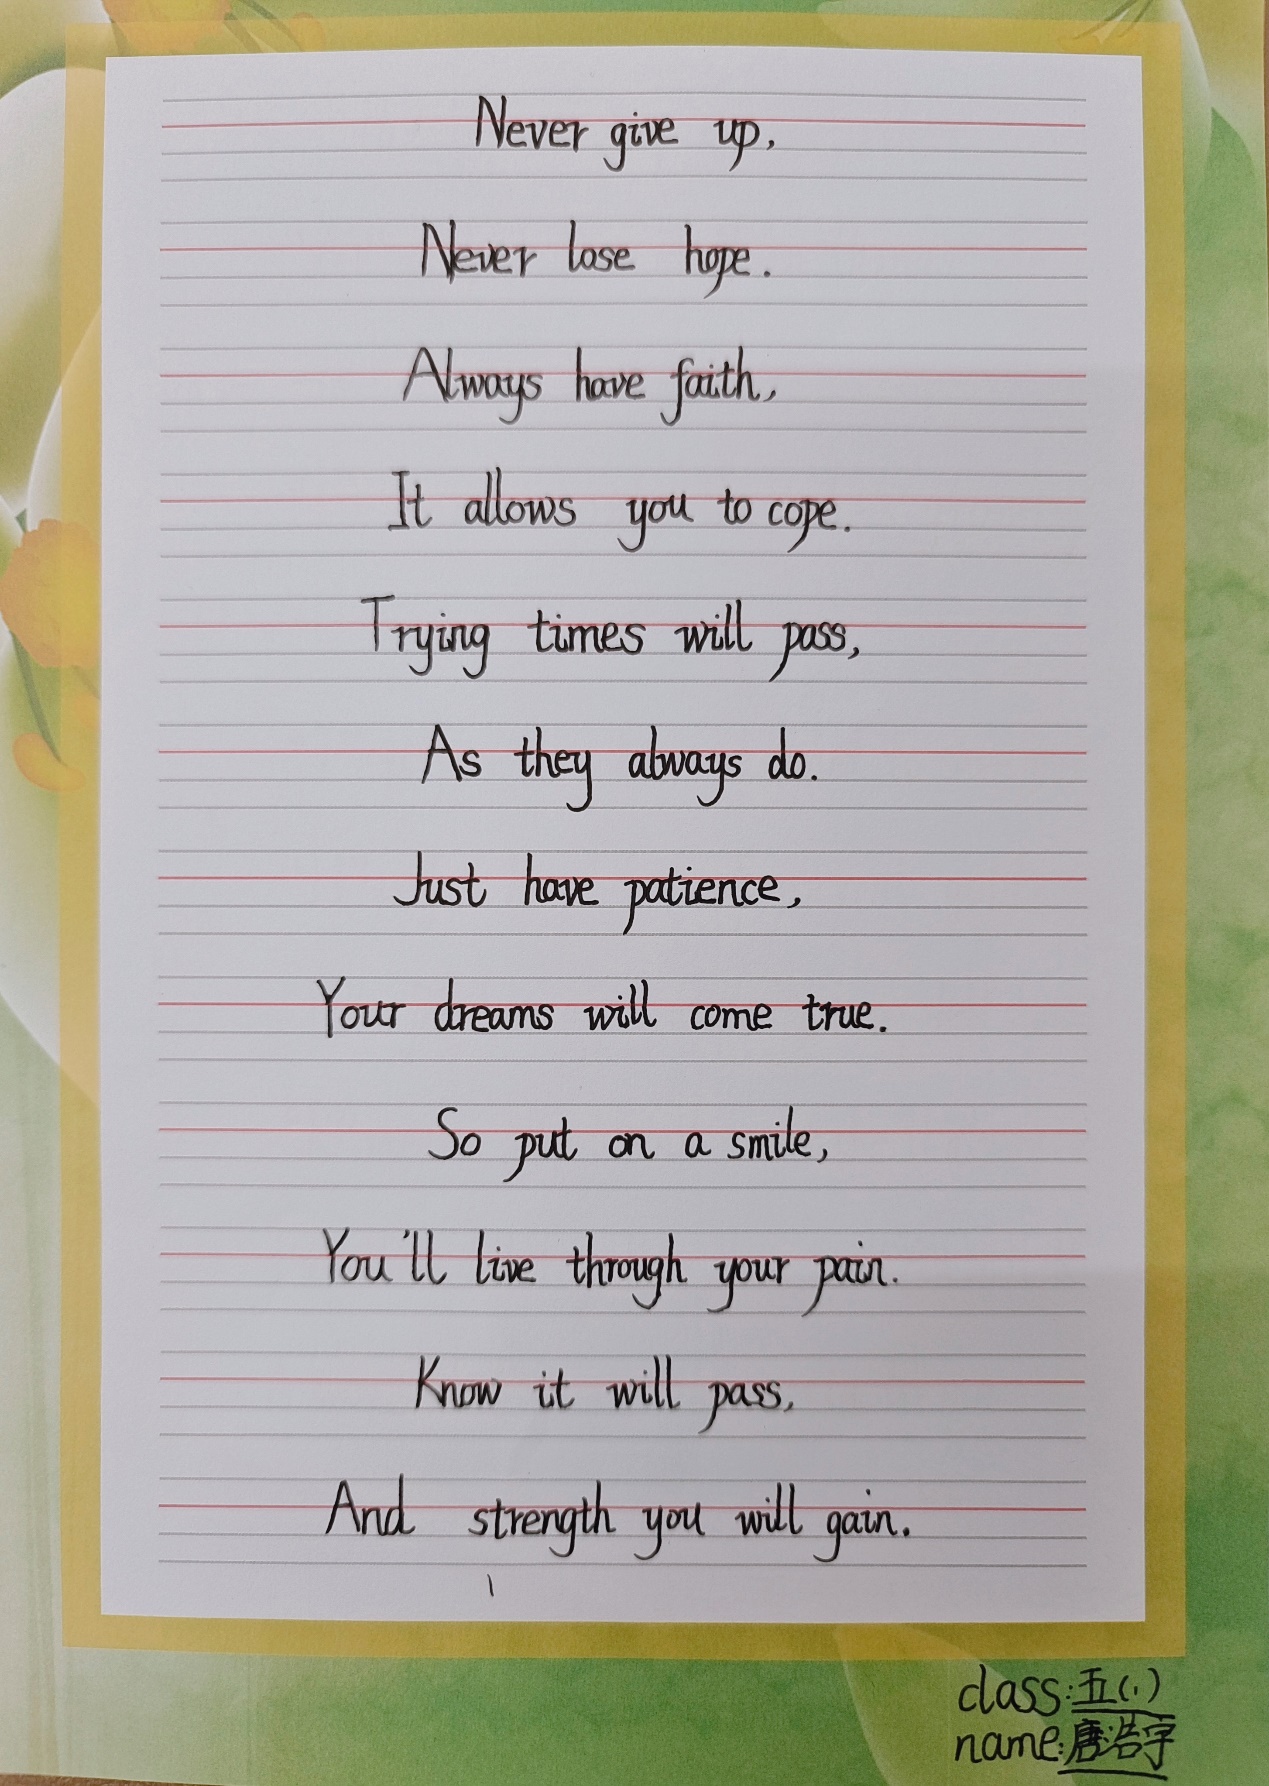 Never give up,
Never lose hope.
Always have faith,
It allows you to cope.
Trying times will pass,
As they always do.
Just have patience,
Your dreams will come true.
So put on a smile,
You'll live through your pain.
Know it will pass,
And strength you will gain.
class:五(1)
name:唐浩宇